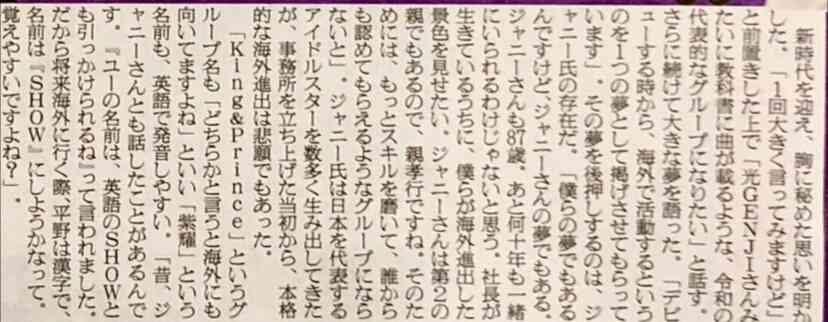 新時代を迎え、胸に秘めた思いを明か
した。「1回大きく言ってみますけど」
と前置きした上で「光GENJIさんみ
たいに教科書に曲が載るような、令和の
代表的なグループになりたい」と話す。
さらに続けて大きな夢を語った。「デビ
ューする時から、海外で活動するという
のを1つの夢として掲げさせてもらって
います」。その夢を後押しするのは、ジ
ャニー氏の存在だ。「僕らの夢でもある
んですけど、ジャニーさんの夢でもある。
ジャニーさんも87歳。あと何十年も一緒
にいられるわけじゃないと思う。社長が
生きているうちに、僕らが海外進出した
景色を見せたい。ジャニーさんは第2の
親でもあるので、親孝行ですね。そのた
めには、もっとスキルを磨いて、誰から
も認めてもらえるようなグループになら
ないと」。ジャニー氏は日本を代表する
アイドルスターを数多く生み出してきた
が、事務所を立ち上げた当初から、本格
的な海外進出は悲願でもあった。
　「King&Prince」というグ
ループ名も「どちらかと言うと海外にも
向いてますよね」といい「紫耀」という
名前も、英語で発音しやすい。「昔、ジ
ャニーさんとも話したことがあるんで
す。『ユーの名前は、英語のSHOWと
も引っかけられるね』って言われました。
だから将来海外に行く際、平野は漢字で、
名前は『SHOW』にしようかなって。
覚えやすいですよね？」。